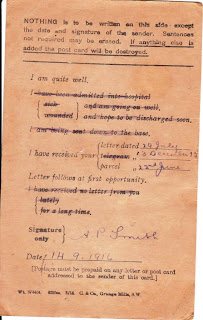 NOTHING is to be written on this side except
the date and signature of the sender. Sentences
not required may be erased. If anything else is
added the post card will be destroyed.
I am quite well.
I have been admitted into hospital
sick and am going on well.
wounded and hope to be discharged soon.
I am being sent down to the base.
letter dated 29 July
I have received your telegram „
parcel „
Letter follows at first opportunity.
I have received no letter from you
lately
for a long time.
Signature
only
A P Smith
Date 14.9.1916
[Postage must be prepaid on any letter or post card
addressed to the sender of this card.]
C. & Co., Grange Mills, S.W.